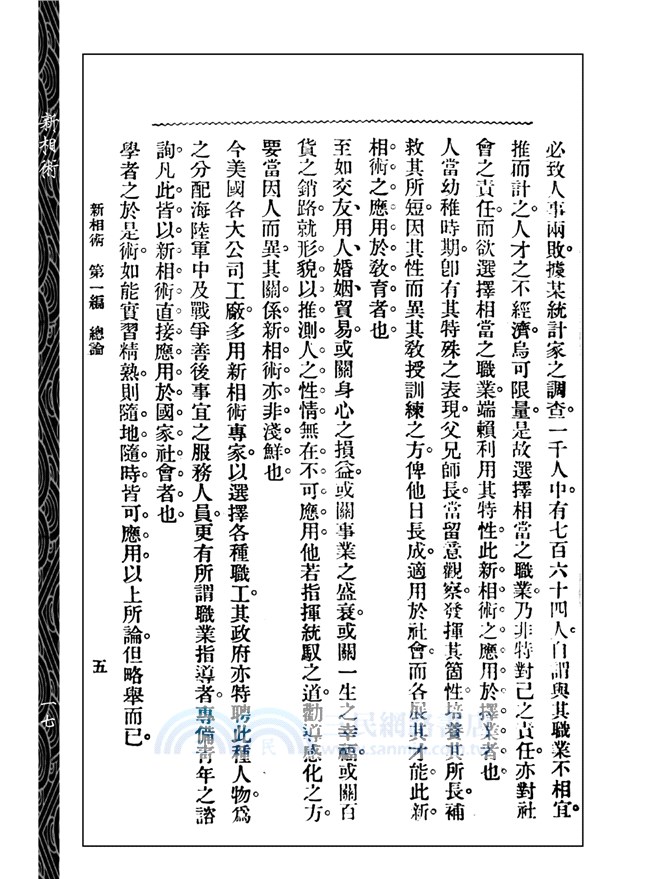 必致人事兩敗。據某統計家之調查。一千人中。有七百六十四人。自謂與其職業不相宜。
推而計之。人才之不經濟。烏可限量。是故選擇相當之職業。乃非特對己之責任。亦對社
會之責任。而欲選擇相當之職業。端賴利用其特性。此新相術之應用於擇業者也。
人當幼稚時期。卽有其特殊之表現。父兄師長。當留意觀察。發揮其箇性。培養其所長。補
救其所短。因其性而異其敎授訓練之方。俾他日長成。適用於社會。而各展其才能。此新
相術之應用於敎育者也。
至如交友、用人、婚姻、貿易。或關身心之損益。或關事業之盛衰。或關一生之幸福。或關百
貨之銷路。就形貌以推測人之性情。無在不可應用。他若指揮統馭之道。勸導感化之方。
要當因人而異。其關係新相術。亦非淺鮮也。
今美國各大公司工廠。多用新相術專家。以選擇各種職工。其政府亦特聘此種人物。爲
之分配海陸軍中及戰爭善後事宜之服務人員。更有所謂職業指導者。專備靑年之諮
詢。凡此皆以新相術直接應用於國家社會者也。
學者之於是術。如能實習精熟。則隨地隨時。皆可應用。以上所論。但略舉而已。
新相術 第一編 總論
五
新相術
一七
三民網路書店
www.sanmin.com.tw